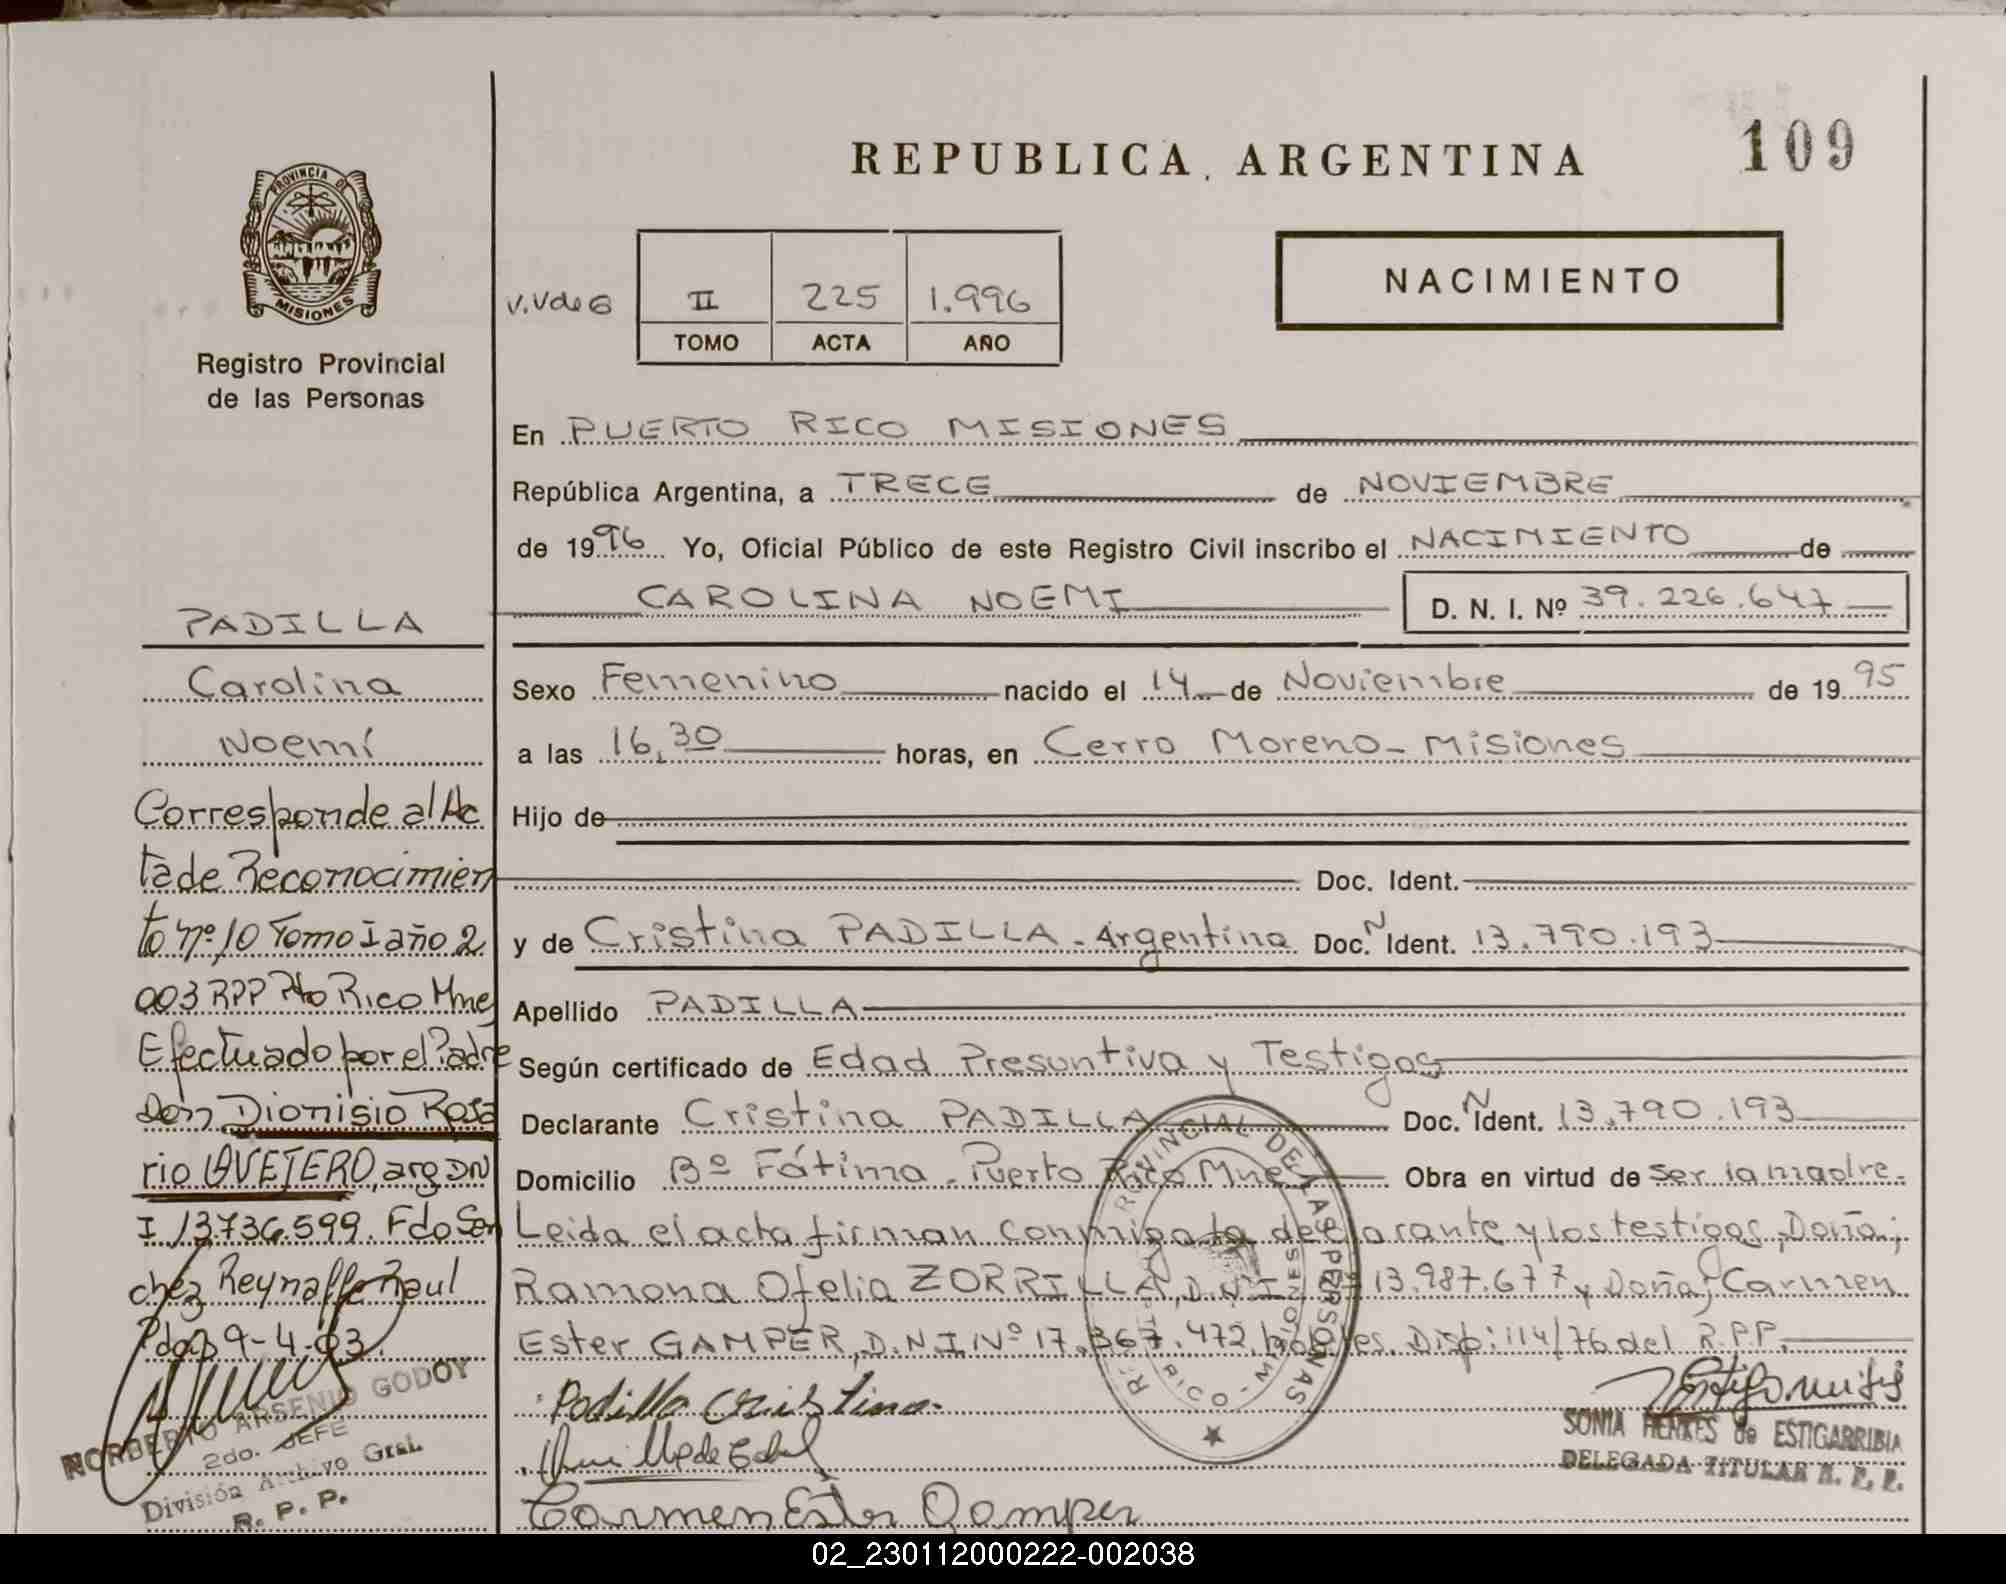 REPUBLICA ARGENTINA
109
PROVINCIA DE
MISIONES
Registro Provincial
de las Personas
V.V de G
II 225 1.996
TOMO ACTA AÑO
NACIMIENTO
En PUERTO RICO MISIONES
República Argentina, a TRECE de NOVIEMBRE
de 1996 Yo, Oficial Público de este Registro Civil inscribo el NACIMIENTO de
CAROLINA NOEMI D. N. I. Nº 39.226.647
Sexo Femenino nacido el 14 de Noviembre de 1995
a las 16,30 horas, en Cerro Moreno - Misiones
Hijo de
Doc. Ident.
y de Cristina PADILLA - Argentina Doc. N Ident. 13.790.193
Apellido PADILLA
Según certificado de Edad Presuntiva y Testigos
Declarante Cristina PADILLA Doc. N Ident. 13.790.193
Domicilio Bº Fátima - Puerto Rico Mnes Obra en virtud de ser la madre.
Leida el acta firman conmigo la declarante y los testigos, Doña;
Ramona Ofelia ZORRILLA, D.N.I. 13.987.677 y Doña; Carmen
Ester GAMPER, D.N.I Nº 17.367.472. Disp: 114/76 del R.P.P.
Padilla Cristina
Carmen Ester Gamper
PADILLA
Carolina
Noemí
Corresponde al Ac
ta de Reconocimien
to nº 10 Tomo I año 2
003 RPP Pto Rico Mnes
Efectuado por el Padre
Don Dionisio Rosa
rio OVEJERO, arg DN
I 13.736.599. Fdo San
chez Reynaffe Raul
Pdas 9-4-03.
NORBERTO ARSENIO GODOY
2do. JEFE
División Archivo Gral.
R. P. P.
PROVINCIAL DE LAS PERSONAS
SONIA HENKES de ESTIGARRIBIA
DELEGADA TITULAR R. P. P.
02_230112000222-002038